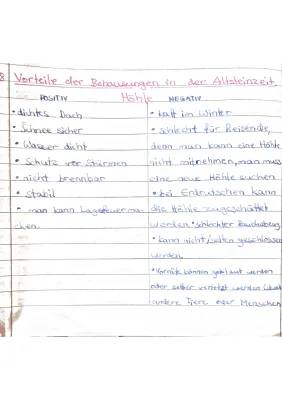 8 Vorteile der Behausungen in der Altsteinzeit
POSITIV Höhle NEGATIV
• dichtes Dach
• Schnee sicher
• Wasser dicht
• Schutz vor Stürmen
• nicht brennbar
• stabil
• man kann Lagerfeuer ma-
chen
• kalt im Winter
• schlecht für Reisende,
denn man kann eine Höhle
nicht mitnehmen, man muss
eine neue Höhle suchen
• bei Erdrutschen kann
die Höhle zugeschüttet
werden • schlechter Rauchabzug
• kann nicht/selten geschlossen
werden
• Vorräte können geklaut werden
oder selber verletzt werden
andere Tiere oder Menschen